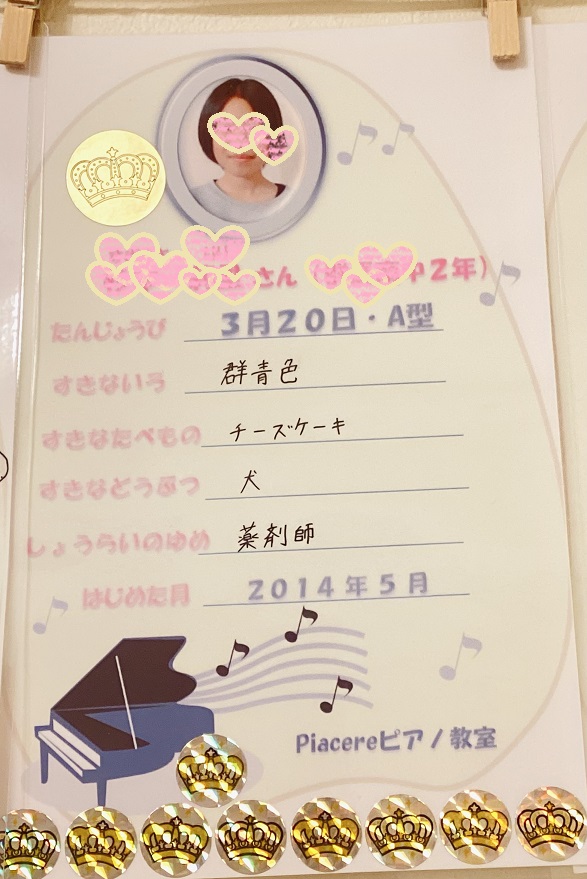 さん（ 中2年）
たんじょうび 3月20日・A型
すきないろ 群青色
すきなたべもの チーズケーキ
すきなどうぶつ 犬
しょうらいのゆめ 薬剤師
はじめた月 2014年5月
Piacereピアノ教室